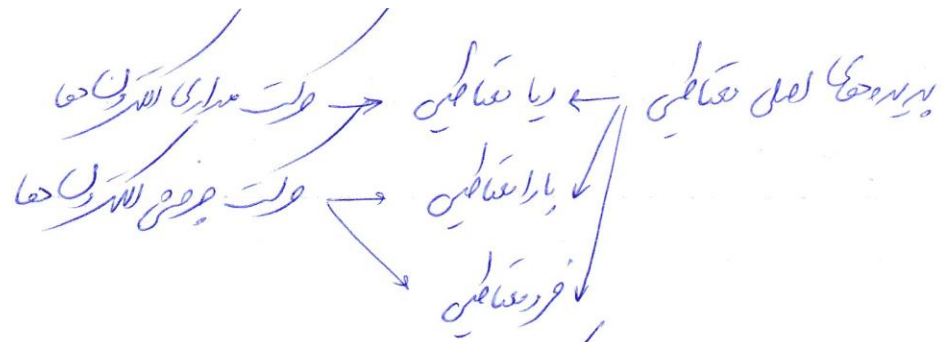 پدیده‌های اصلی مغناطیسی ← دیا مغناطیسی ← حرکت مداری الکترون‌ها
پارامغناطیسی ← حرکت چرخشی الکترون‌ها
فرومغناطیسی